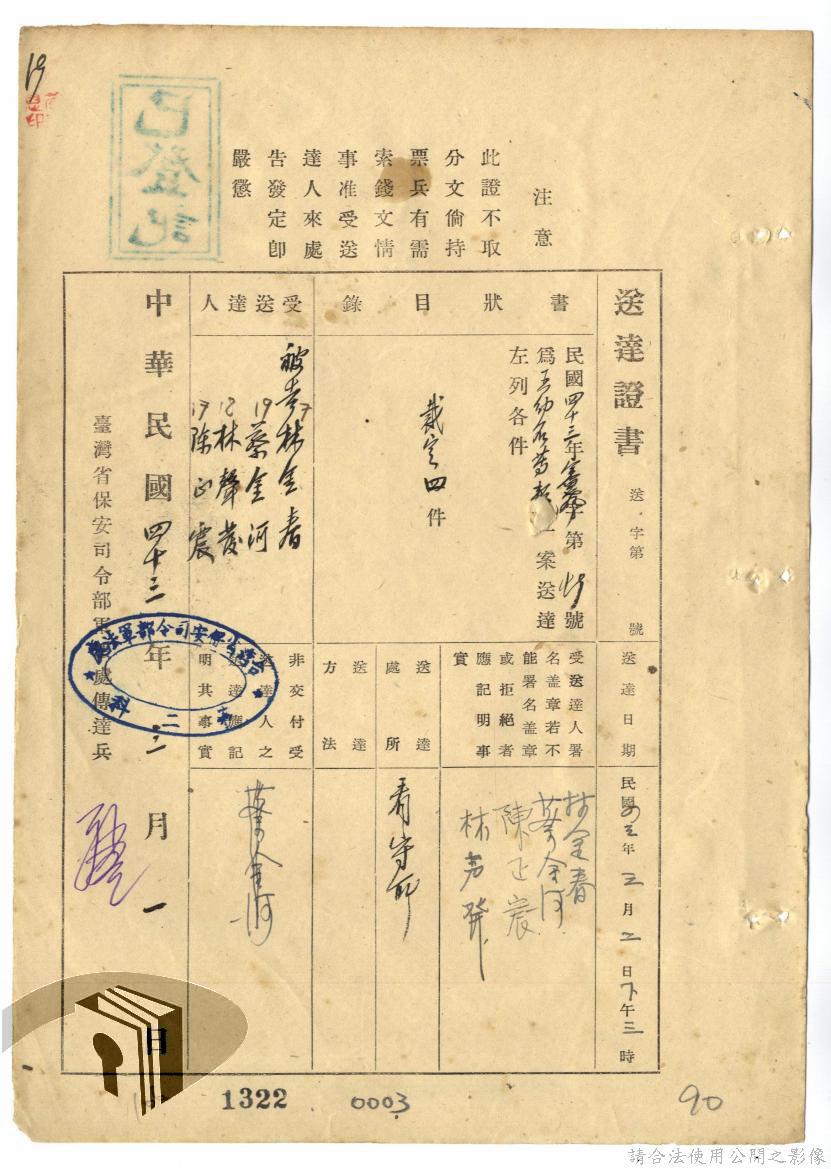 19
已登記
注意
此證不取
分文倘持
票兵有需
索錢文情
事准受送
達人來處
告發定即
嚴懲
送達證書
送 字第 號
送達日期
民國四三年三月二日下午三時
書狀目錄
民國四十三年 字第 號
為王幼石等 一案送達
左列各件
裁定四件
受送達人署
名蓋章若不
能署名蓋章
或拒絕者
應記明事
實
林金春
蔡金河
陳正宸
林声發
送達處所
看守所
送達方法
受送達人
被告林金春
19蔡金河
12林聲發
17陳正宸
非交付受
送達人之
送達應記
明其事實
蔡金河
中華民國四十三年三月一日
臺灣省保安司令部軍法處傳達兵
台灣省保安司令部軍法處
第二科
1322
0003
90
請合法使用公開之影像